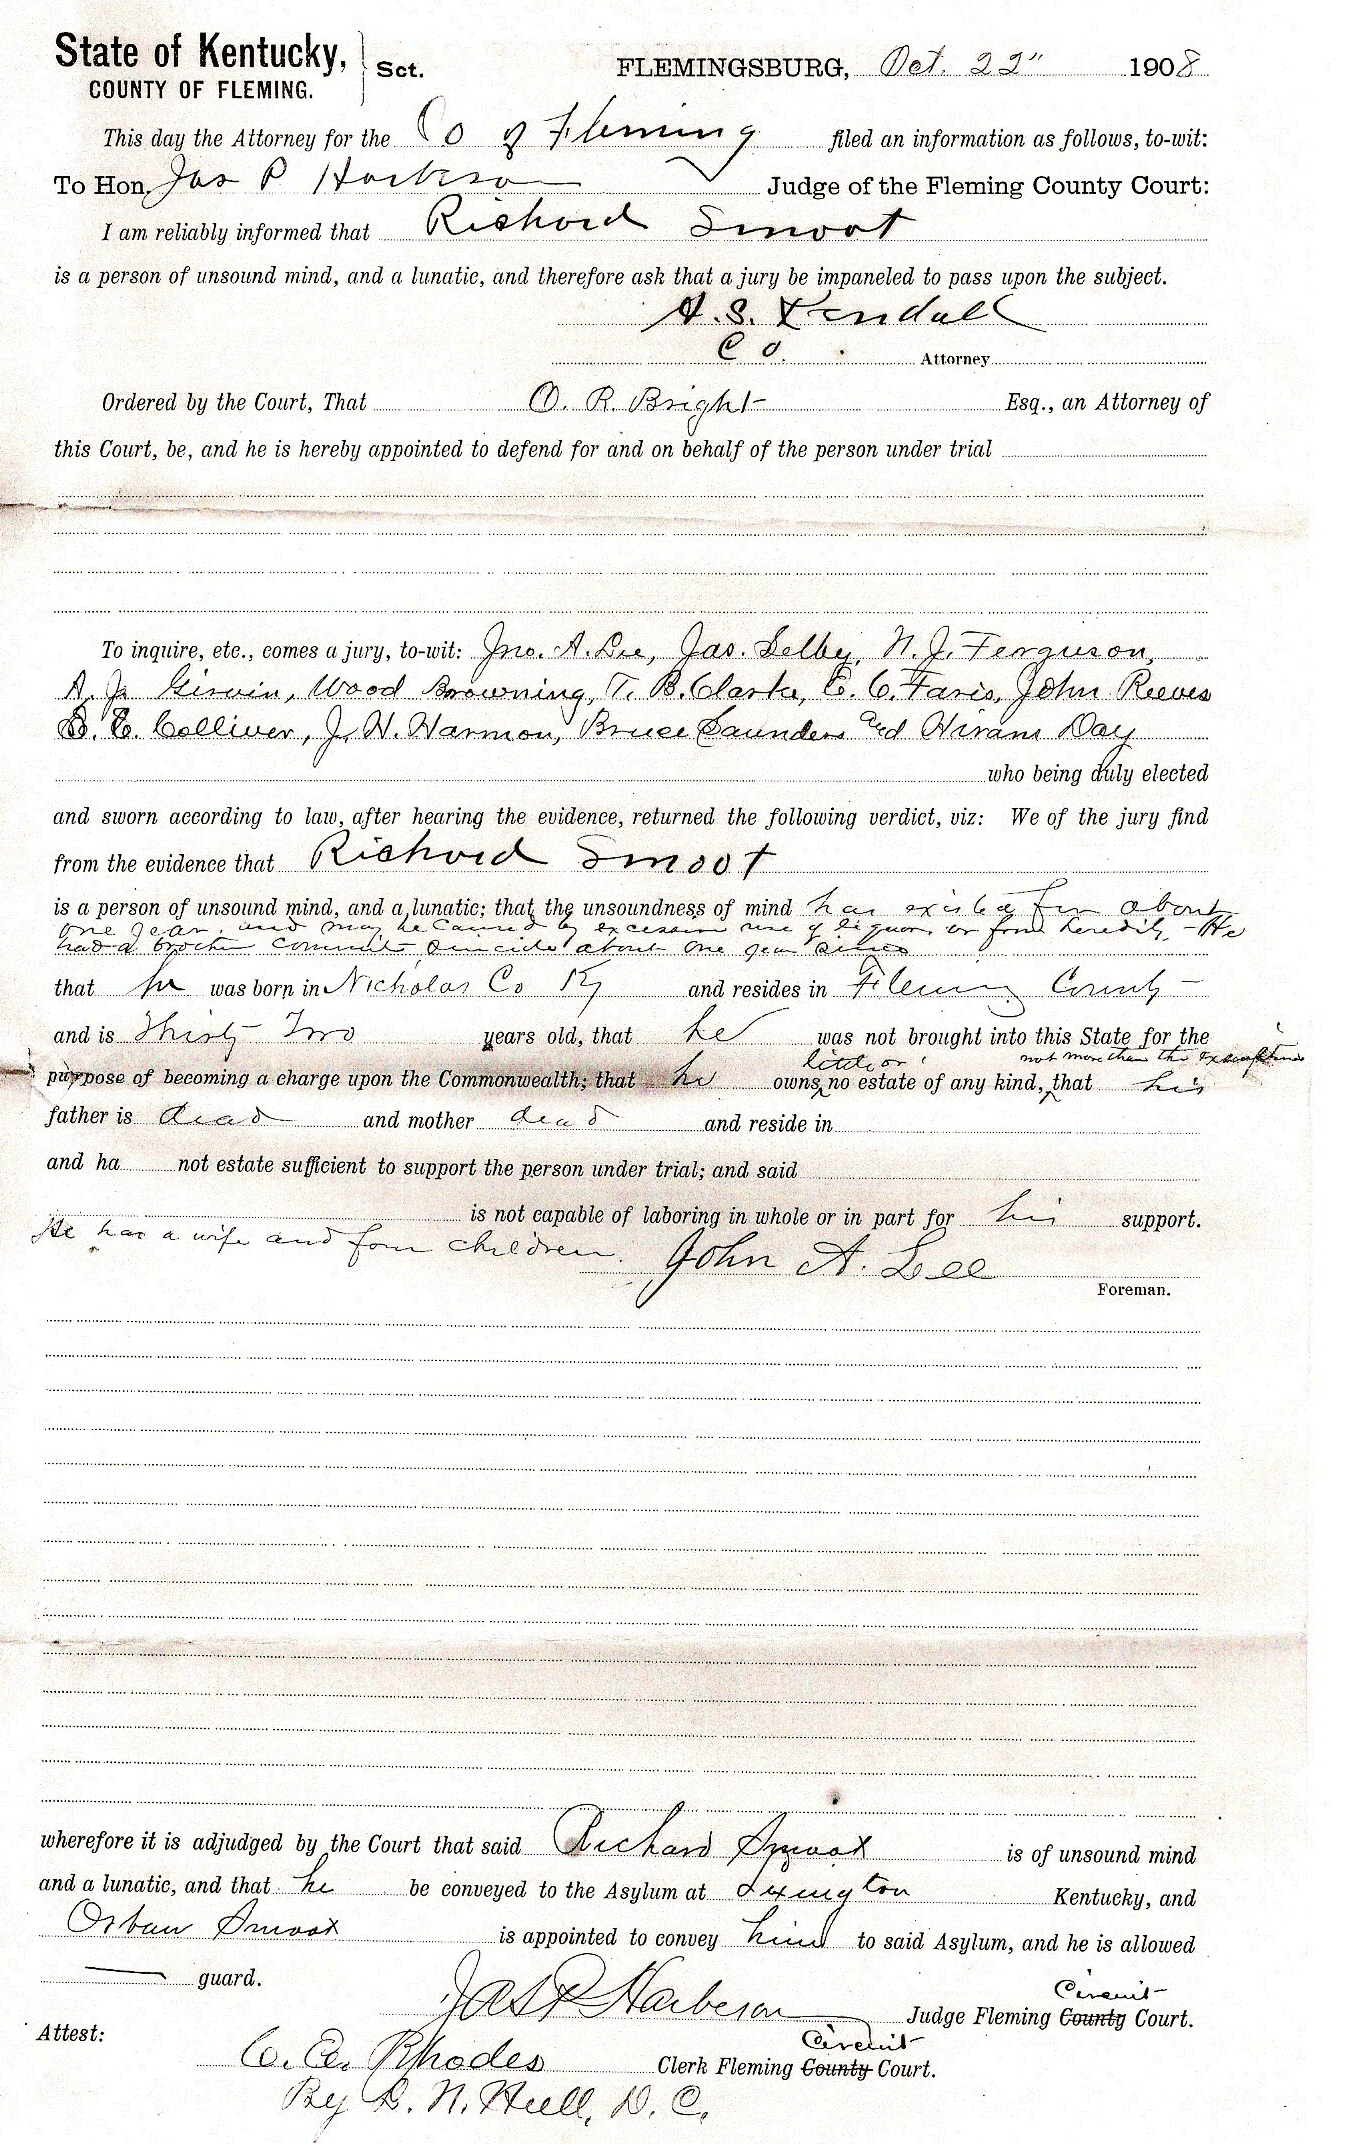 State of Kentucky, } Sct. FLEMINGSBURG, Oct. 22" 1908
COUNTY OF FLEMING.
This day the Attorney for the Co of Fleming filed an information as follows, to-wit:
To Hon. Jas P Harbeson Judge of the Fleming County Court:
I am reliably informed that Richard Smoot
is a person of unsound mind, and a lunatic, and therefore ask that a jury be impaneled to pass upon the subject.
A. S. Kendall
Co. Attorney
Ordered by the Court, That O. R. Bright Esq., an Attorney of
this Court, be, and he is hereby appointed to defend for and on behalf of the person under trial
To inquire, etc., comes a jury, to-wit: Jno. A. Lee, Jas. Selby, N. J. Ferguson,
A. J. Girvin, Wood Browning, T. B. Clarke, E. C. Faris, John Reeves
S. E. Colliver, J. H. Harmon, Bruce Saunders and Hiram Day
who being duly elected
and sworn according to law, after hearing the evidence, returned the following verdict, viz: We of the jury find
from the evidence that Richard Smoot
is a person of unsound mind, and a lunatic; that the unsoundness of mind has existed for about
one year. and may be caused by excessive use of liquor, or from heredity - He
had a brother commit suicide about one year since
that he was born in Nicholas Co Ky and resides in Fleming County -
and is Thirty Two years old, that he was not brought into this State for the
little or not more than the
purpose of becoming a charge upon the Commonwealth; that he owns no estate of any kind, that his
father is dead and mother dead and reside in
and ha not estate sufficient to support the person under trial; and said
is not capable of laboring in whole or in part for his support.
He has a wife and four children. John A. Lee
Foreman.
wherefore it is adjudged by the Court that said Richard Smoot is of unsound mind
and a lunatic, and that he be conveyed to the Asylum at Lexington Kentucky, and
Orban Smoot is appointed to convey him to said Asylum, and he is allowed
— guard.
Circuit
Jas P Harbeson Judge Fleming County Court.
Attest:
Circuit
C. A. Rhodes Clerk Fleming County Court.
By L. N. Hull, D. C.